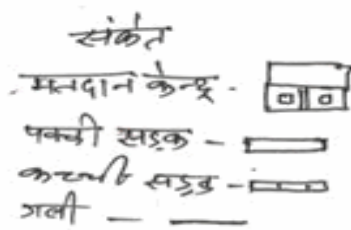 संकेत
मतदान केन्द्र -
पक्की सड़क -
कच्ची सड़क -
गली -